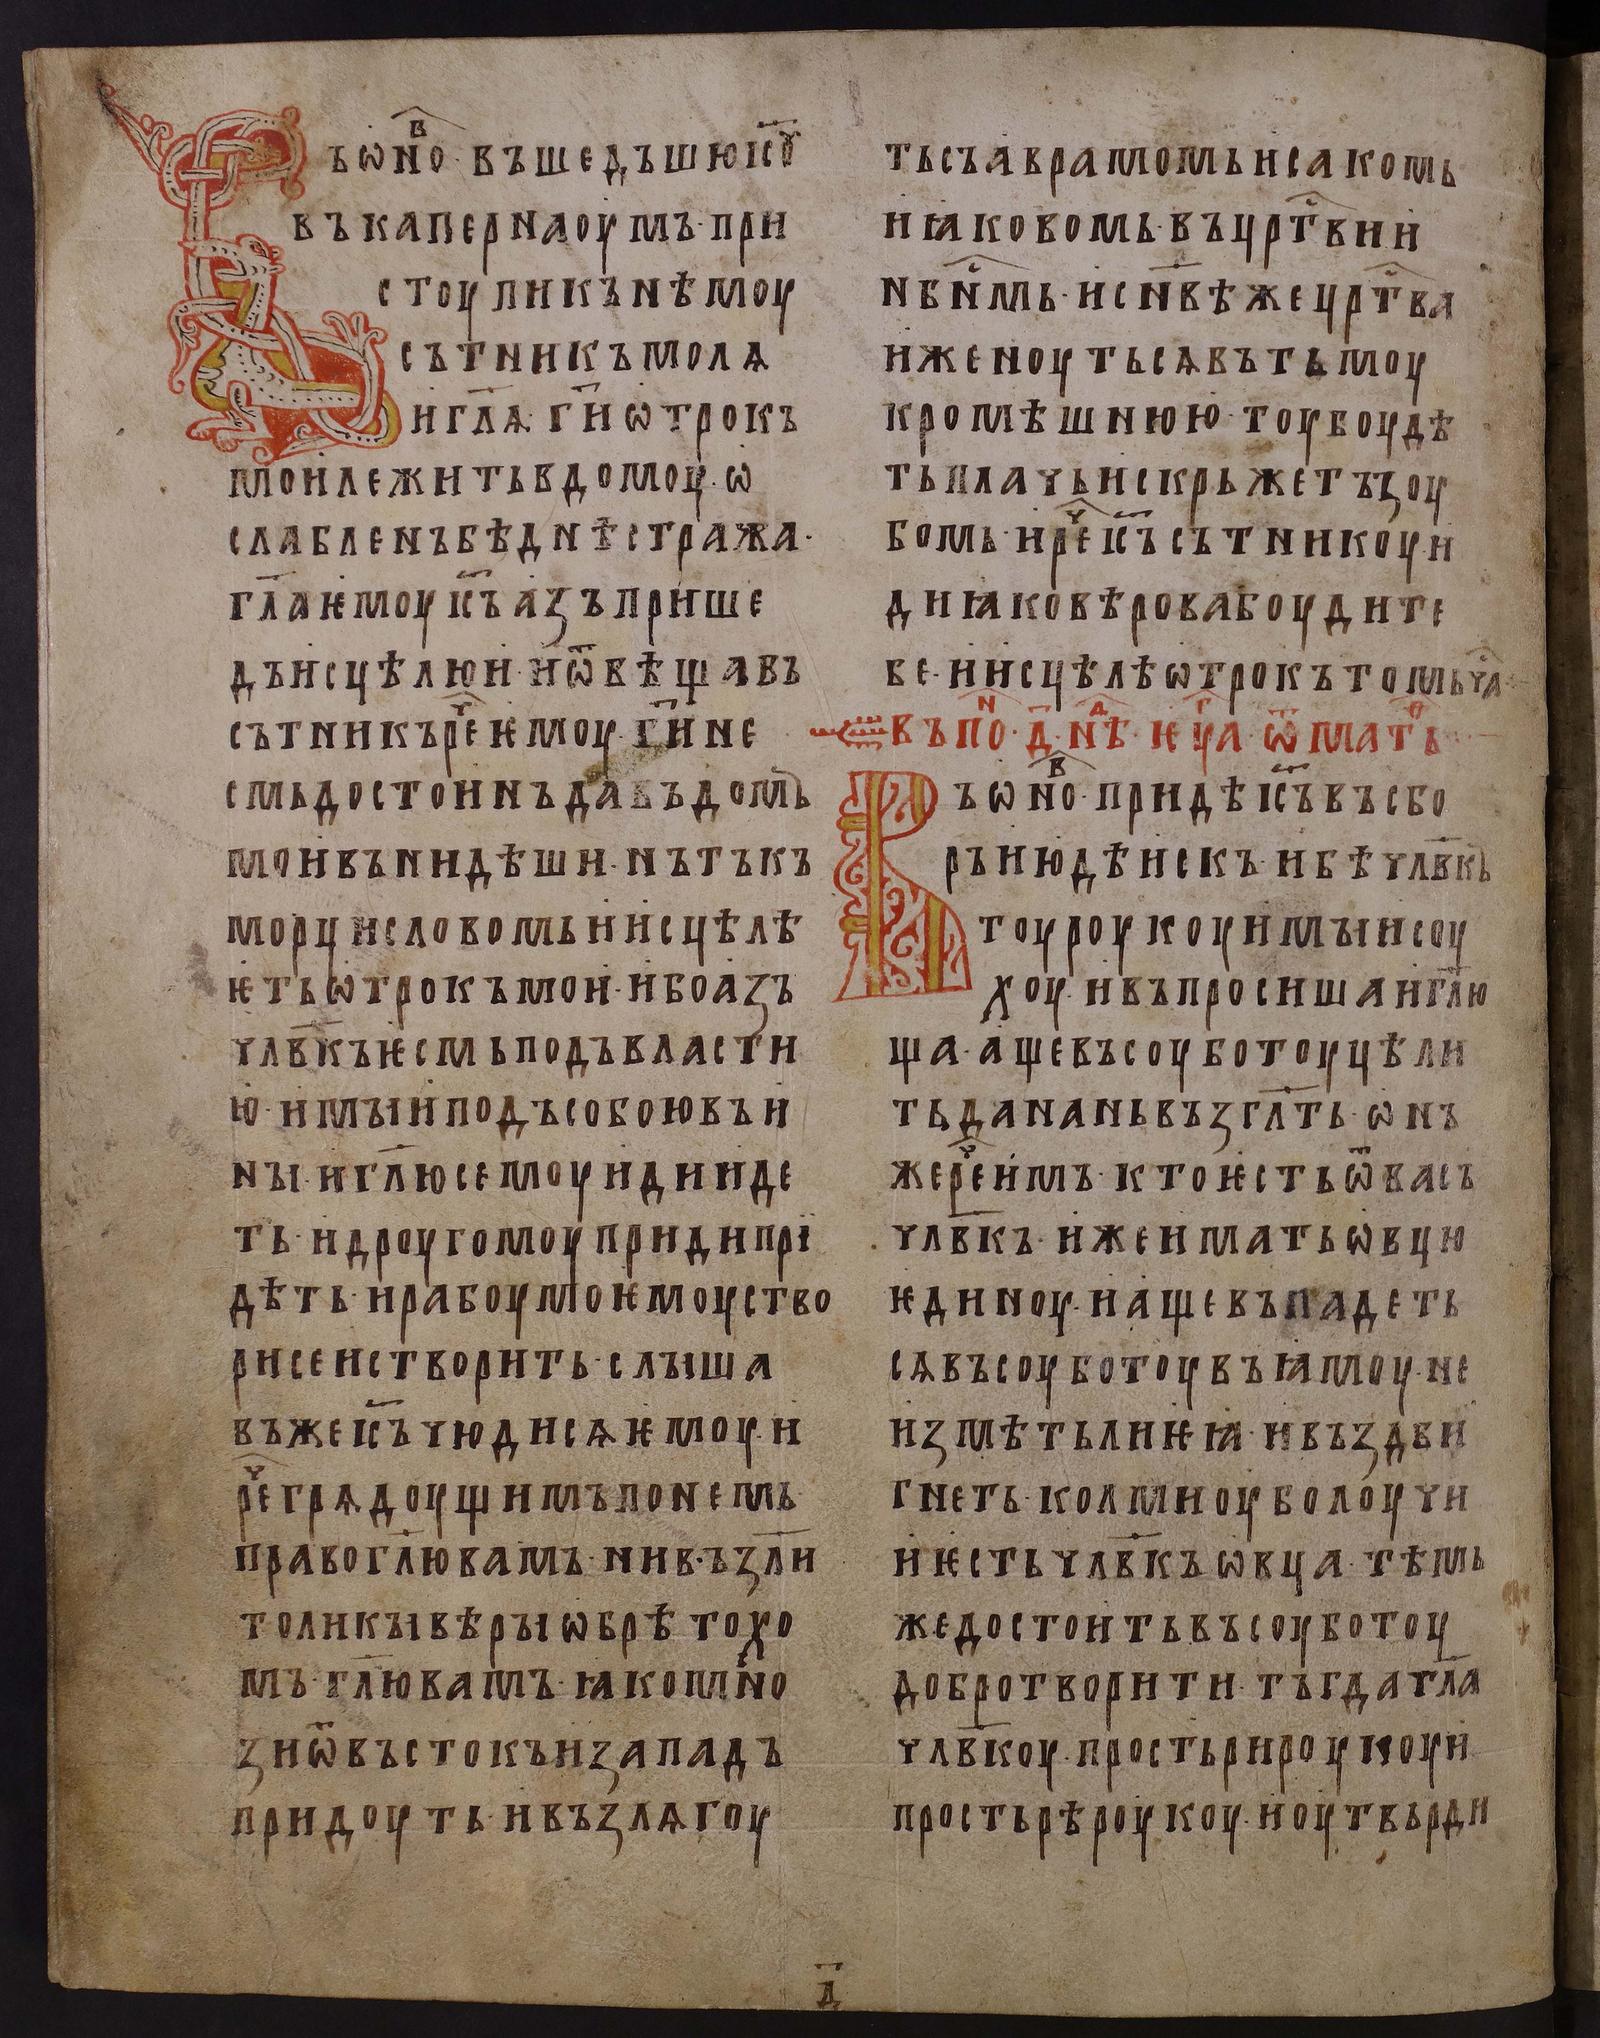 Въѡно҇в· въшедъшюі҃соу
въкапернаоумъ· при
стоупикънѣмоу
сътникъмолѧ
и҆гл҃ѧ· г҃иѡтрокъ
моилежитьвдомоу· ѡ
слабленъбѣднѣстража·
гл҃аѥмоуі҃съазъприше
дъисцѣлюи· иѿвѣщавъ
сътникърече҇ѥмоу· г҃ине
смьдостоинъдавъдомъ
моивънидѣши· нътъкъ
морцисловомьиисцѣлѣ
ѥтьѡтрокъмои· ибоазъ
члв҃къѥсмьподъвласти
ю· имꙑиподъсобоювъи
нꙑ· игл҃юсемоуидииде
ть· идроугомоупридипрї
дѣть· ирабоумоѥмоуство
рисеистворить· слꙑша
въжеі҃съчюдисѧѥмоу· и
рече҇грѧдоущимъпонемь·
правогл҃ювамъ· нивъзл҃и
толикꙑвѣрꙑѡбрѣтохо
мъ· гл҃ювамъ· ꙗкомн҇о
зиѿвъстокъизападъ
придоуть· ивъзлѧгоу
тьсъаврамомьисакомь
иꙗковомь· въцрт҇вии
нбн҇мь· исн҃вѣжецрт҇ва
иженоутьсѧвътьмоу
кромѣшнюю· тоубоудѣ
тьплачьискрьжетъзоу
бомь· ирече҇і҃съсътникоуи
диꙗковѣровабоудите
бе· иисцѣлѣѡтрокътомьча҇
въпон҇· д҃· нѣд҇· ѥуг҇а· ѿматѳ҇ь
Въѡно҇в· придѣі҃съвъсбо
ръиюдѣискъ· ибѣчлв҃къ
тоуроукоуимꙑисоу
хоу· ивъпросишаигл҃ю
ща· ащевъсоуботоуцѣли
тьдананьвъзгл҃ть· ѡнъ
жерече҇имъ· ктоѥстьѿвасъ
члв҃къ· ижеиматьѡвцю
ѥдиноу· иащевъпадеть
сѧвъсоуботоувъꙗмоу· не
изметьлиѥꙗ· ивъздви
гнеть· колмиоуболоучи
иѥстьчлв҃къѡвца· тѣмь
жедостоитьвъсоуботоу
добротворити· тъгдагл҃а
члв҃коу· простьрироукоуи
простьрѣроукоу· иоутвьрди
д҃